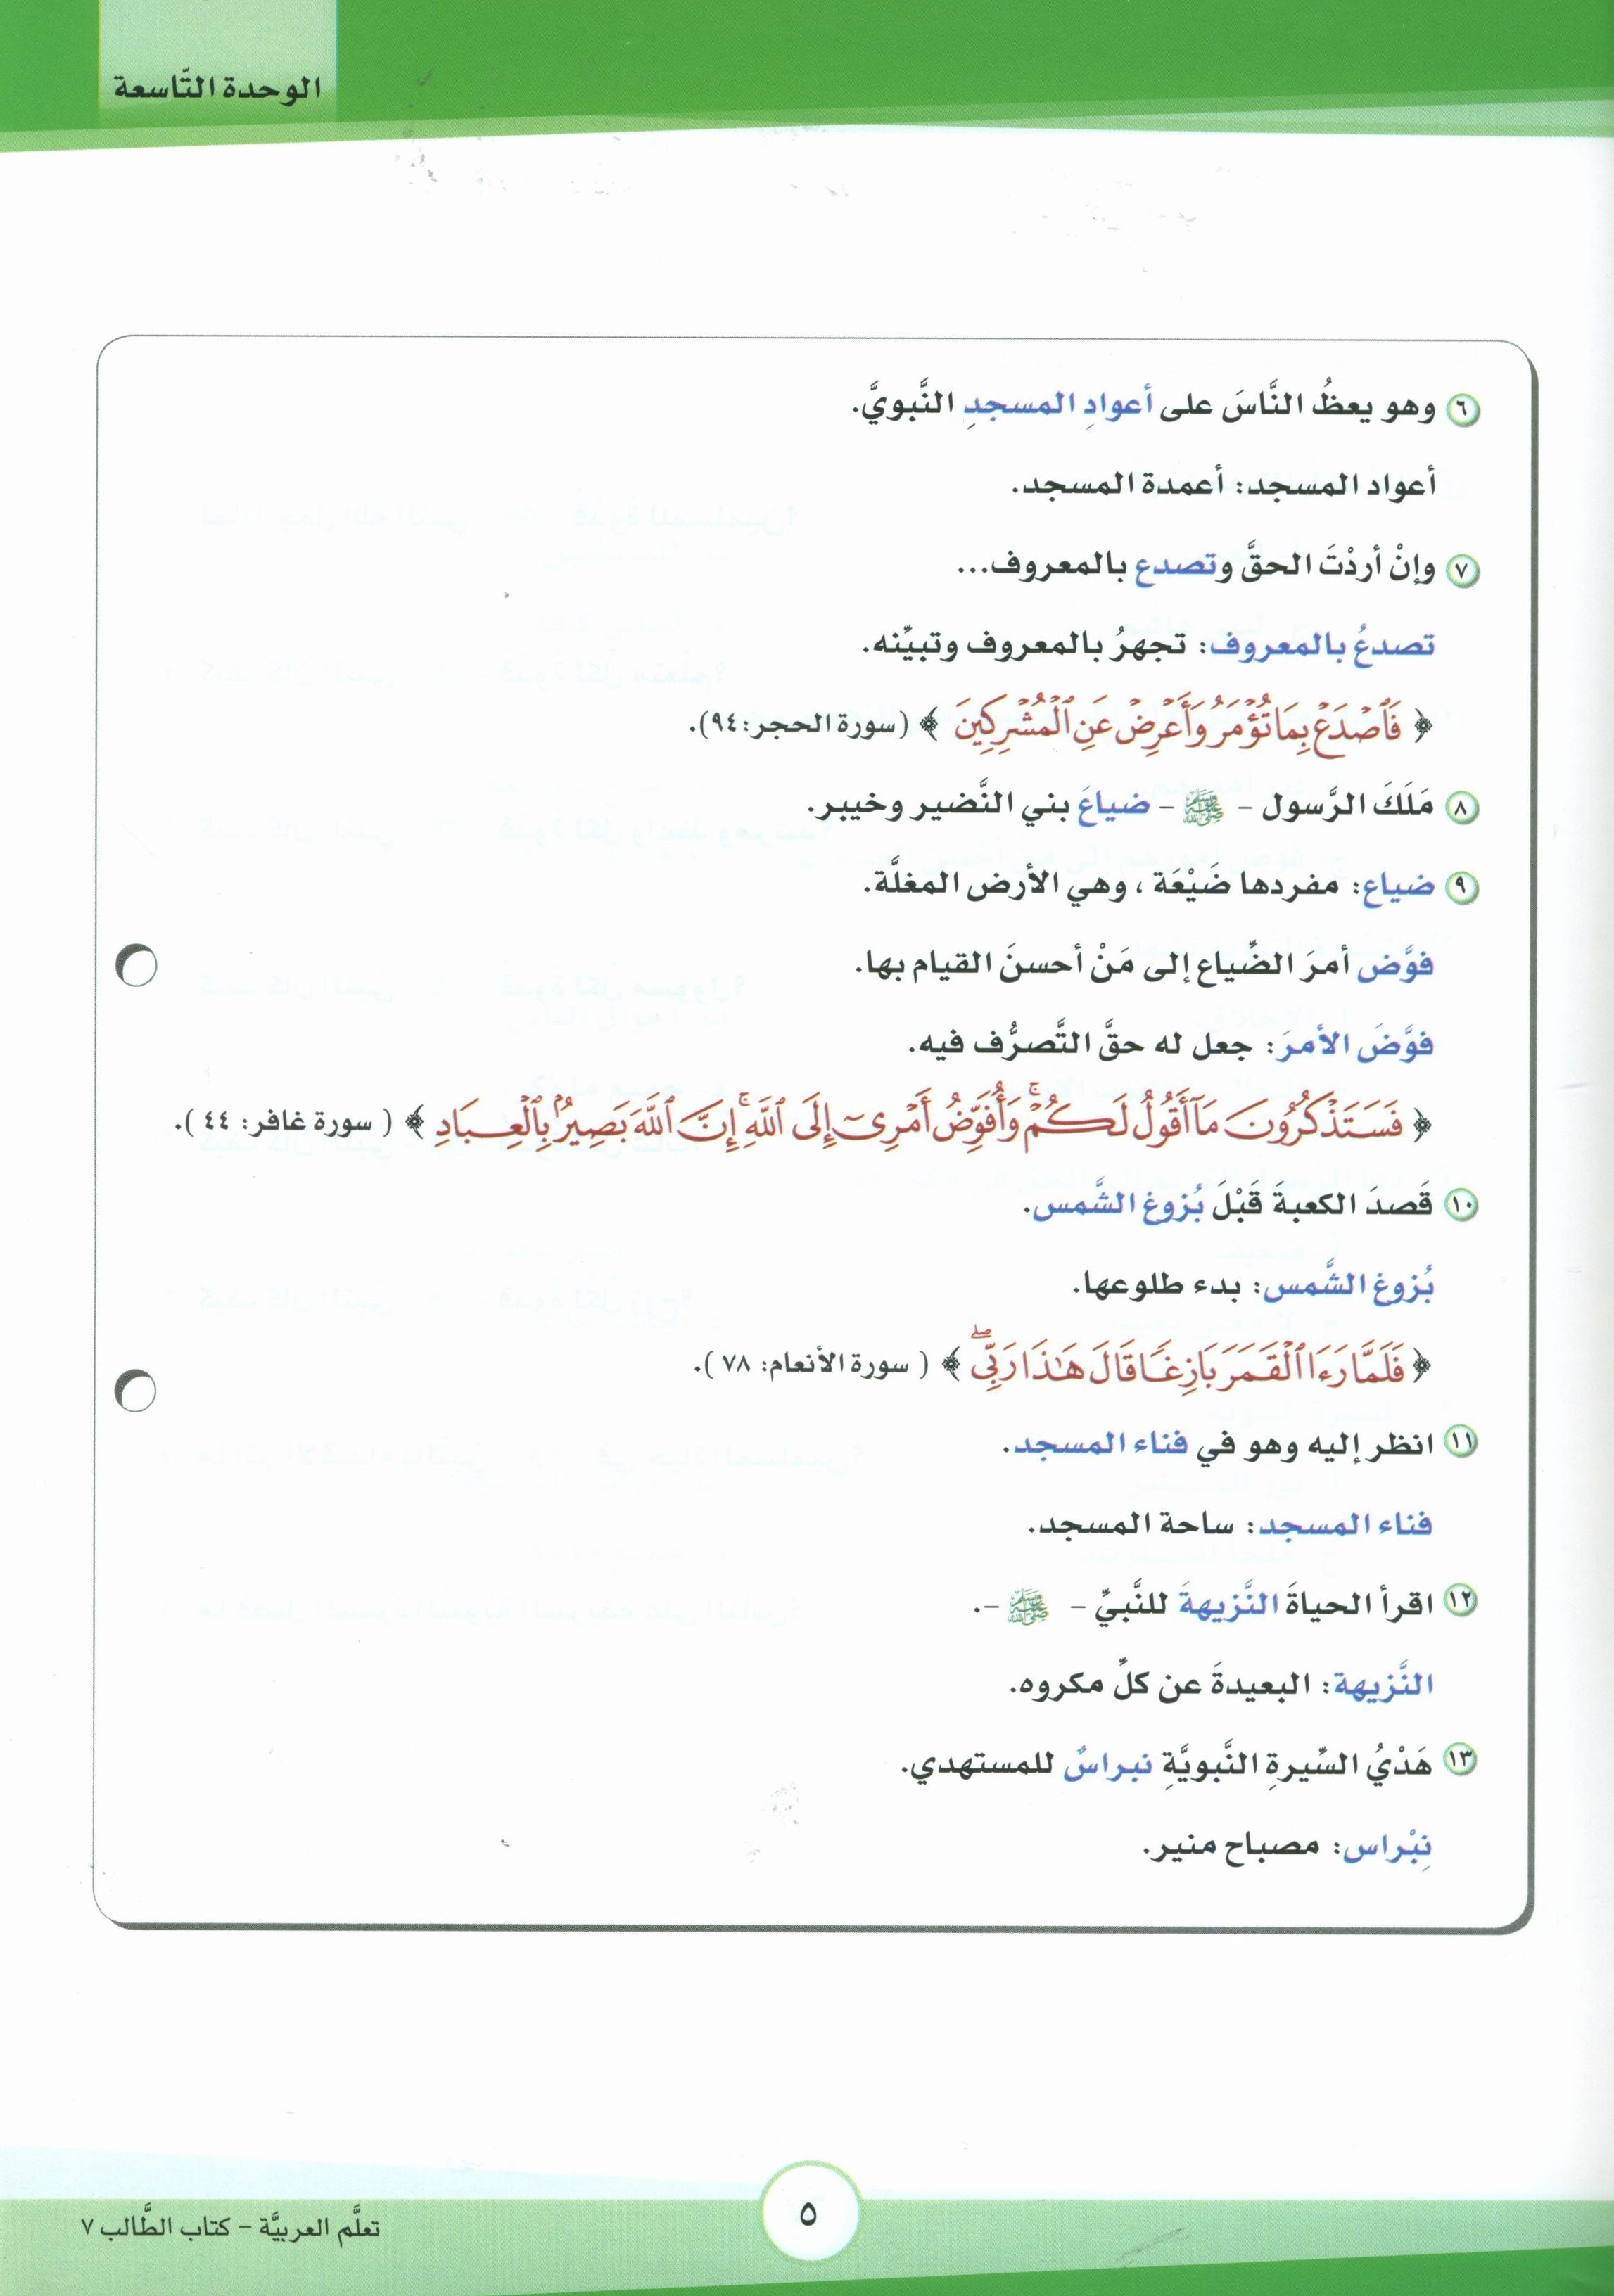 الوحدة التّاسعة
٦ وهو يعظُ النَّاسَ على أعوادِ المسجدِ النَّبويَّ.
أعواد المسجد: أعمدة المسجد.
٧ وإنْ أردْتَ الحقَّ وتصدع بالمعروف...
تصدعُ بالمعروف: تجهرُ بالمعروف وتبيِّنه.
﴿ فَٱصْدَعْ بِمَا تُؤْمَرُ وَأَعْرِضْ عَنِ ٱلْمُشْرِكِينَ ﴾ (سورة الحجر: ٩٤).
٨ مَلَكَ الرَّسول - ﷺ - ضياعَ بني النَّضير وخيبر.
٩ ضياع: مفردها ضَيْعَة ، وهي الأرض المغلَّة.
فوَّض أمرَ الضِّياع إلى مَنْ أحسنَ القيام بها.
فوَّضَ الأمرَ: جعل له حقَّ التَّصرُّف فيه.
﴿ فَسَتَذْكُرُونَ مَآ أَقُولُ لَكُمْ ۚ وَأُفَوِّضُ أَمْرِىٓ إِلَى ٱللَّهِ ۚ إِنَّ ٱللَّهَ بَصِيرٌۢ بِٱلْعِبَادِ ﴾ ( سورة غافر: ٤٤ ).
١٠ قَصدَ الكعبةَ قَبْلَ بُزوغ الشَّمس.
بُزوغ الشَّمس: بدء طلوعها.
﴿ فَلَمَّا رَءَا ٱلْقَمَرَ بَازِغًا قَالَ هَٰذَا رَبِّى ۖ ﴾ ( سورة الأنعام: ٧٨ ).
١١ انظر إليه وهو في فناء المسجد.
فناء المسجد: ساحة المسجد.
١٢ اقرأ الحياةَ النَّزيهةَ للنَّبيِّ - ﷺ -.
النَّزيهة: البعيدةَ عن كلِّ مكروه.
١٣ هَدْيُ السِّيرةِ النَّبويَّةِ نبراسٌ للمستهدي.
نِبْراس: مصباح منير.
٥
تعلَّم العربيَّة - كتاب الطَّالب ٧